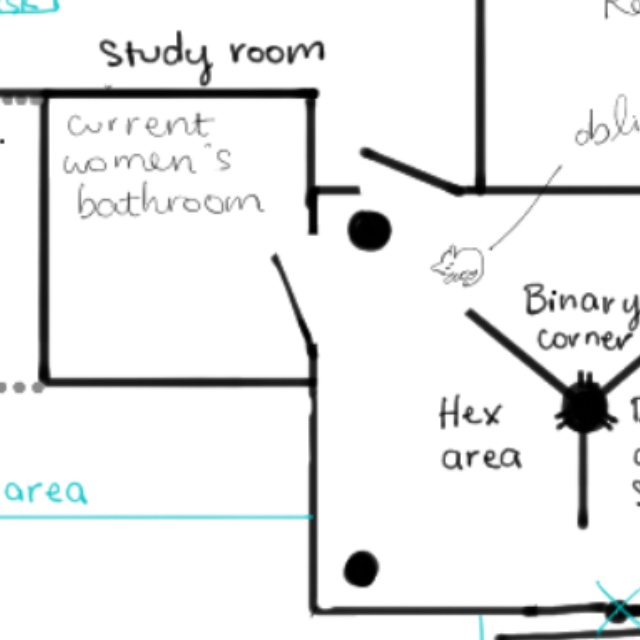 Study room
current
women's
bathroom
Binary
corner
Hex
area
area